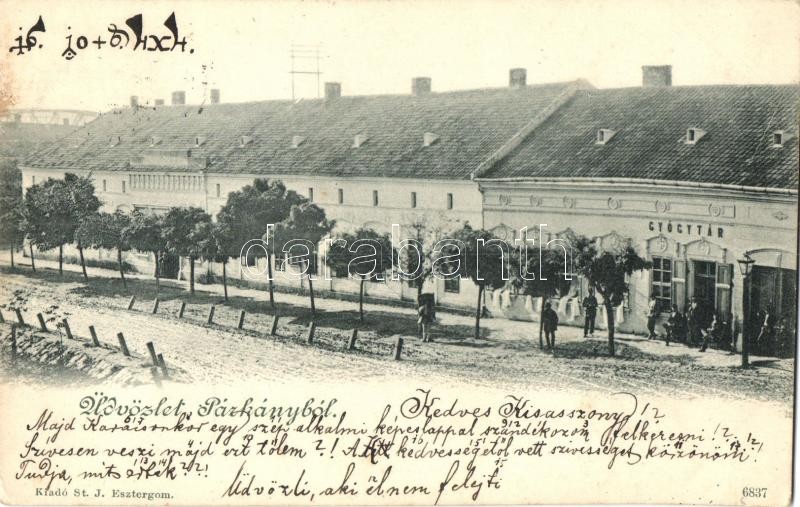 GYÓGYTÁR
darabanth.com
Üdvözlet Párkányból.
Kedves Kisasszony!?
Majd Karácsonkor egy szép alkalmi képeslappal szándékozom Felkeresni!?
Szivesen veszi majd ezt tőlem?! A kedvességétől vett szivességet köszönöm!
Tudja, mit értek?!
Üdvözli, aki él nem felejti
Kiadó St. J. Esztergom.
6837